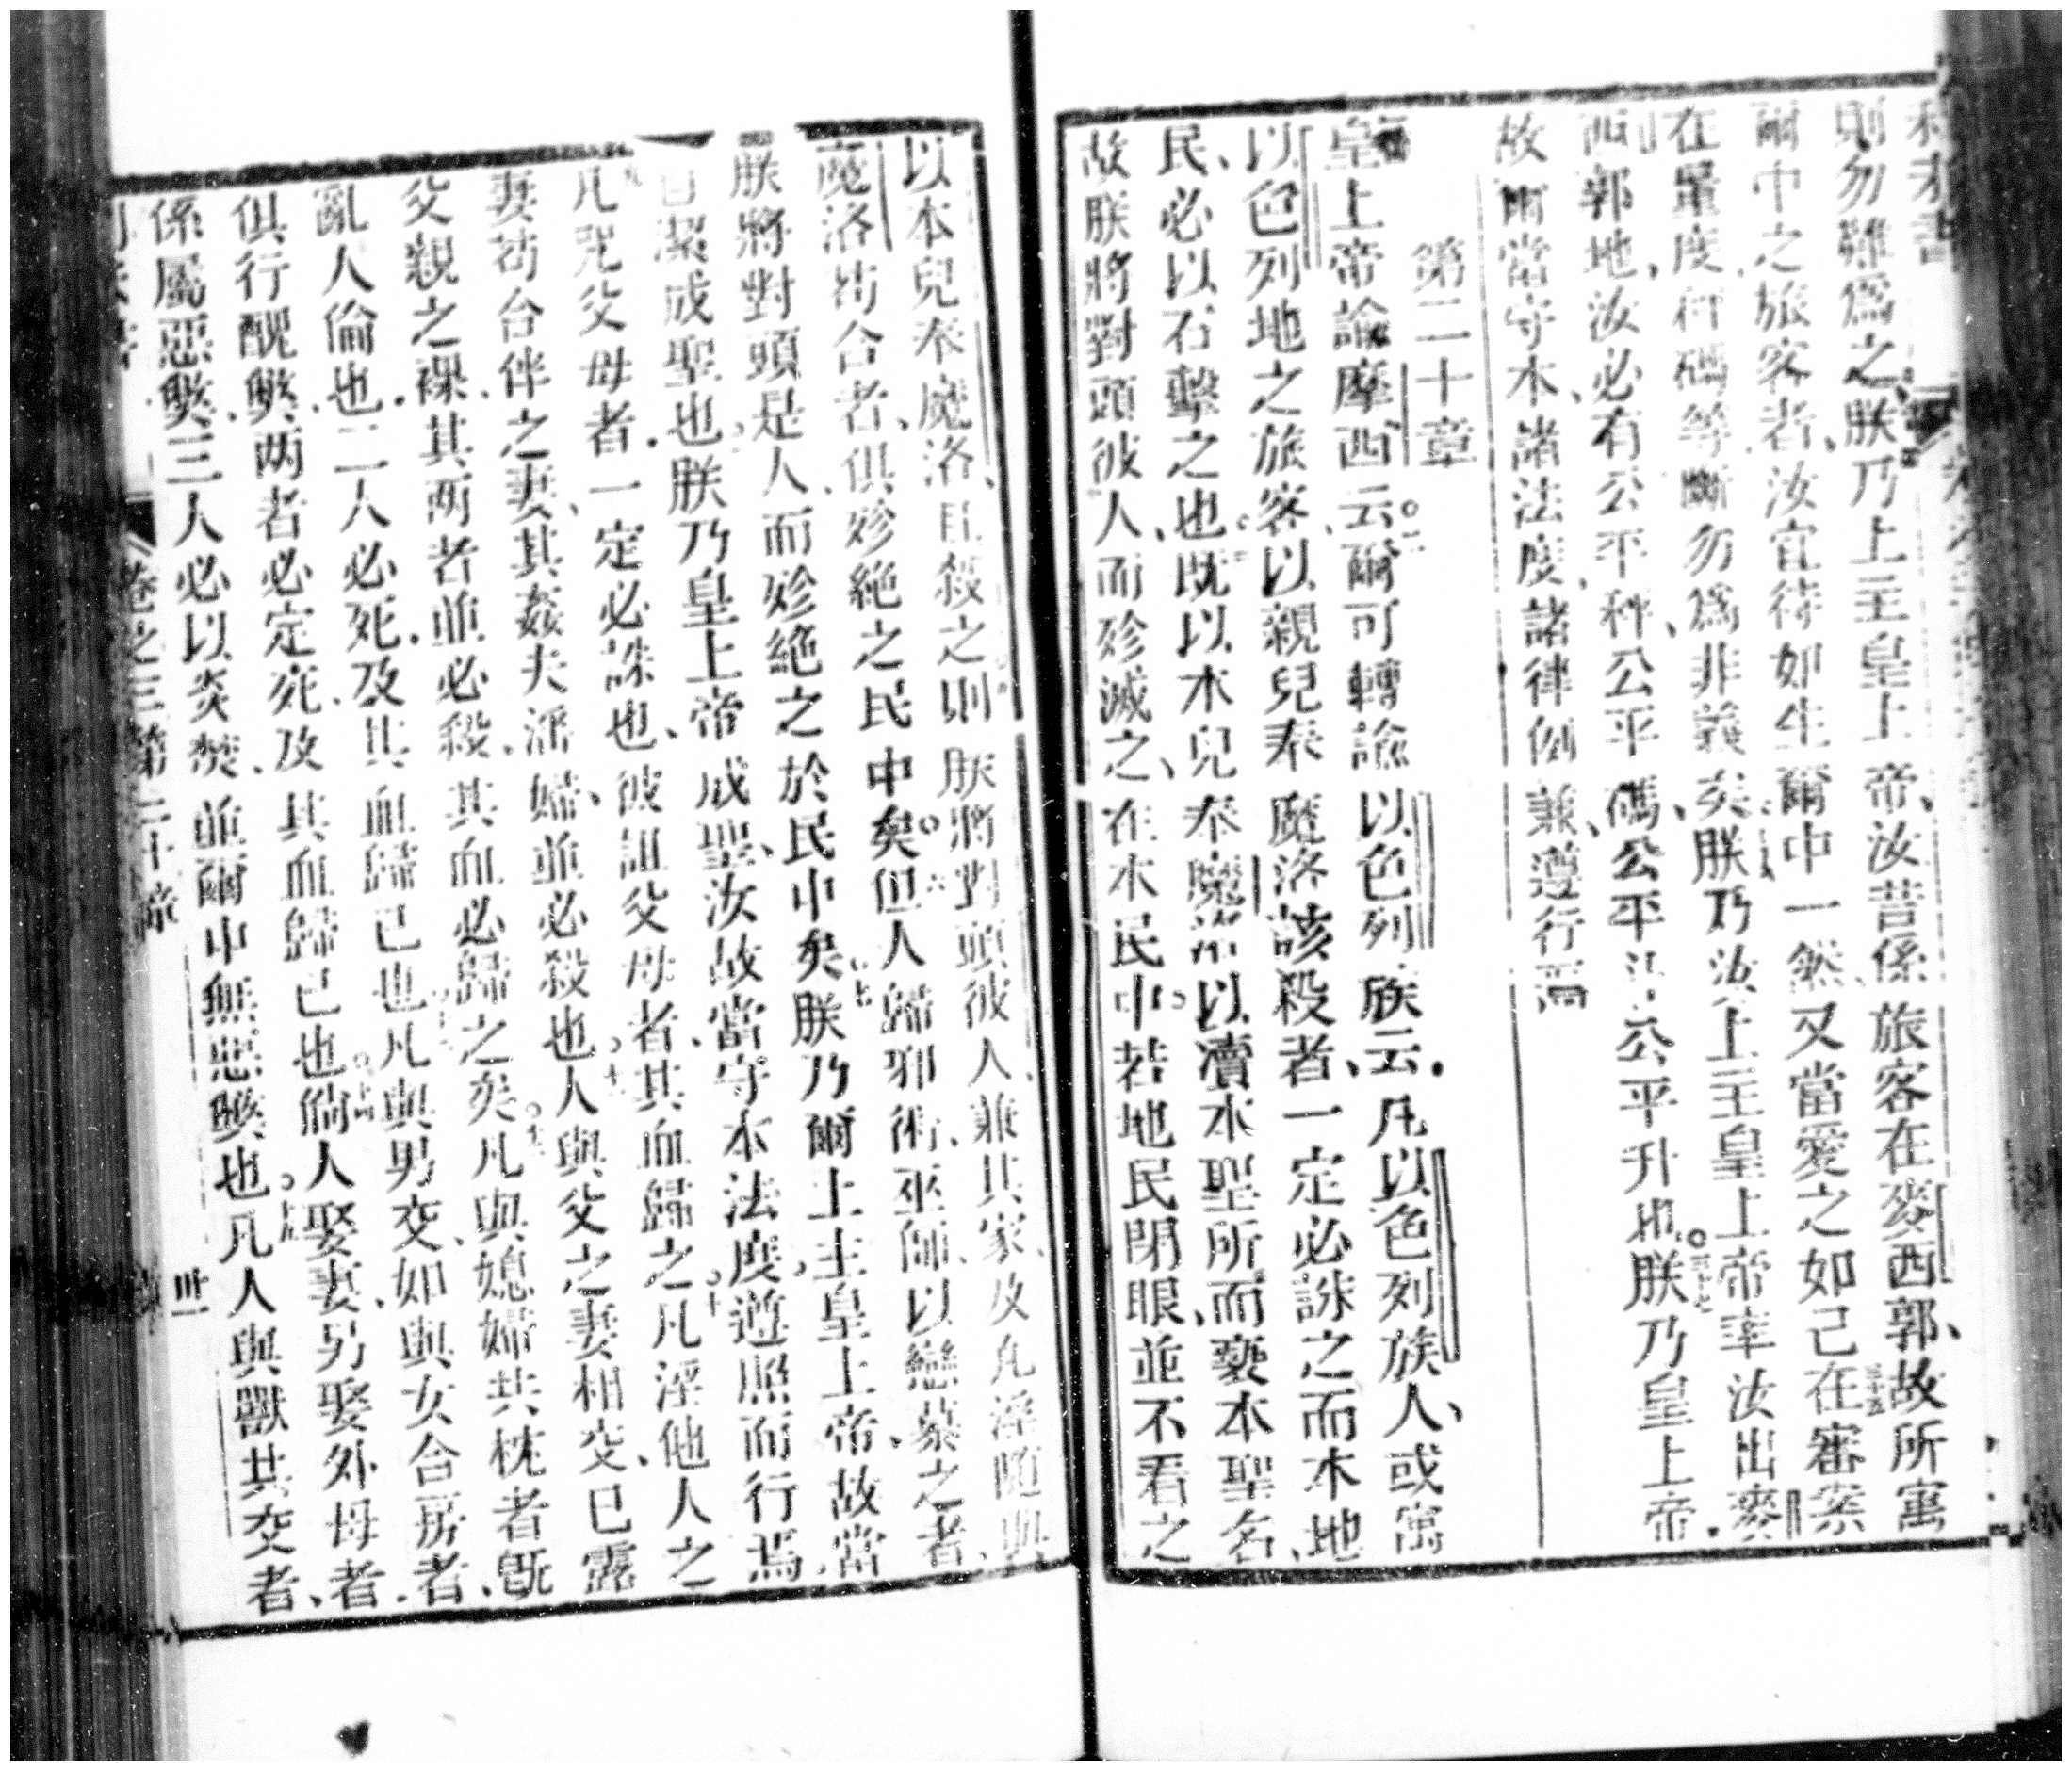 則勿難爲之、朕乃上主皇上帝、汝昔係旅客在麥西郭、故所寓
爾中之旅客者、汝宜待如生爾中一然、又當愛之如己在審案
在量度秤碼等斷勿爲非義矣朕乃汝上主皇上帝率汝出麥
西郭地、汝必有公平秤、公平碼、公平 公平升 朕乃皇上帝
故爾當守本諸法度、諸律例兼遵行焉
第二十章
皇上帝諭摩西云、爾可轉諭以色列族云、凡以色列族人、或寓
以色列地之旅客、以親兒奉魔洛該殺者、一定必誅之而本地
民、必以石擊之也、旣以本兒奉魔洛以瀆本聖所、而褻本聖名、
故朕將對頭彼人、而殄滅之、在本民中、若地民閉眼、並不看之
以本兒奉魔洛、且殺之、則朕將對頭彼人、兼其家、及凡淫隨與
魔洛苟合者、俱殄絕之民中矣、但人歸邪術、巫師、以戀慕之者、
朕將對頭是人、而殄絕之於民中矣朕乃爾上主皇上帝、故當
自潔成聖也、朕乃皇上帝成聖、汝故當守本法度、遵照而行焉、
凡咒父母者、一定必誅也、彼詛父母者、其血歸之、凡淫他人之
妻、苟合伴之妻、其姦夫淫婦、並必殺也、人與父之妻相交、已露
父親之裸、其兩者並必殺、其血必歸之矣、凡與媳婦共枕者旣
亂人倫也、二人必死、及其血歸己也、凡與男交、如與女合房者、
俱行醜弊、兩者必定死、及其血歸己也、倘人娶妻、另娶外母者、
係屬惡弊、三人必以炎焚、並爾中無惡弊也、凡人與獸共交者、
卷之三第二十章
卅一